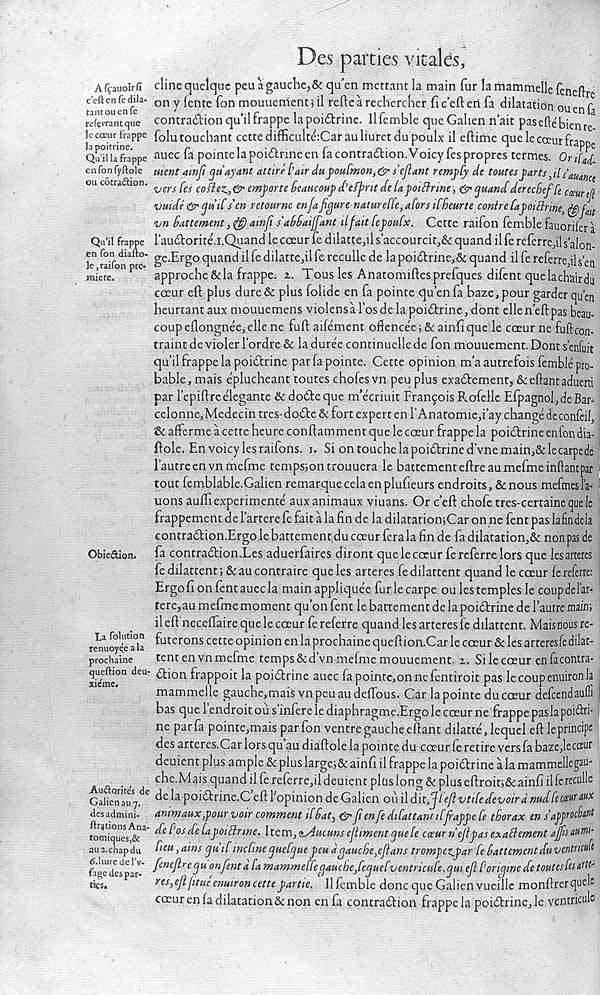 Des parties vitales,
A sçauoir si
c'est en se dila-
tant ou en se
referrant que
le cœur frappe
la poitrine.
Qu'il la frappe
en son systole
ou cõtractiõ.
cline quelque peu à gauche, & qu'en mettant la main sur la mammelle senestre
on y sente son mouuement; il reste à rechercher si c'est en sa dilatation ou en sa
contraction qu'il frappe la poictrine. Il semble que Galien n'ait pas esté bien re-
solu touchant cette difficulté: Car au liuret du poulx il estime que le cœur frappe
auec sa pointe la poictrine en sa contraction. Voicy ses propres termes. Or il ad-
uient ainsi qu'ayant attiré l'air du poulmon, & s'estant remply de toutes parts, il s'auance
vers ses costez, & emporte beaucoup d'esprit de la poictrine; & quand derechef le cœur est
vuidé & qu'il s'en retourne en sa figure naturelle, alors il heurte contre la poictrine, & fait
vn battement, & ainsi s'abbaissant il fait le poulx. Cette raison semble fauoriser à
Qu'il frappe
en son diasto-
le, raison pre-
miere.
l'auctorité. 1. Quand le cœur se dilatte, il s'accourcit, & quand il se referre, il s'alon-
ge. Ergo quand il se dilatte, il se reculle de la poictrine, & quand il se referre, il s'en
approche & la frappe. 2. Tous les Anatomistes presques disent que la chair du
cœur est plus dure & plus solide en sa pointe qu'en sa baze, pour garder qu'en
heurtant aux mouuemens violens à l'os de la poictrine, dont elle n'est pas beau-
coup eslongnée, elle ne fust aisément offencée; & ainsi que le cœur ne fust con-
traint de violer l'ordre & la durée continuelle de son mouuement. Dont s'ensuit
qu'il frappe la poictrine par sa pointe. Cette opinion m'a autrefois semblé pro-
bable, mais éplucheant toutes choses vn peu plus exactement, & estant aduerti
par l'epistre élegante & docte que m'écriuit François Roselle Espagnol, de Bar-
celonne, Medecin tres-docte & fort expert en l'Anatomie, i'ay changé de conseil,
& afferme à cette heure constamment que le cœur frappe la poictrine en son dia-
stole. En voicy les raisons. 1. Si on touche la poictrine d'vne main, & le carpe de
l'autre en vn mesme temps; on trouuera le battement estre au mesme instant par
tout semblable. Galien remarque cela en plusieurs endroits, & nous mesmes l'a-
uons aussi experimenté aux animaux viuans. Or c'est chose tres-certaine que le
frappement de l'artere se fait à la fin de la dilatation; Car on ne sent pas la fin de la
contraction. Ergo le battement du cœur sera la fin de sa dilatation, & non pas de
Obiection.
sa contraction. Les aduersaires diront que le cœur se referre lors que les arteres
se dilattent; & au contraire que les arteres se dilattent quand le cœur se referre:
Ergo si on sent auec la main appliquée sur le carpe ou les temples le coup de l'ar-
tere, au mesme moment qu'on sent le battement de la poictrine de l'autre main;
il est necessaire que le cœur se referre quand les arteres se dilattent. Mais nous re-
La solution
renuoyée a la
prochaine
question deu-
xiéme.
futerons cette opinion en la prochaine question. Car le cœur & les arteres se dilat-
tent en vn mesme temps & d'vn mesme mouuement. 2. Si le cœur en sa contra-
ction frappoit la poictrine auec sa pointe, on ne sentiroit pas le coup enuiron la
mammelle gauche, mais vn peu au dessous. Car la pointe du cœur descend aussi
bas que l'endroit où s'insere le diaphragme. Ergo le cœur ne frappe pas la poictri-
ne par sa pointe, mais par son ventre gauche estant dilatté, lequel est le principe
des arteres. Car lors qu'au diastole la pointe du cœur se retire vers sa baze, le cœur
deuient plus ample & plus large; & ainsi il frappe la poictrine à la mammelle gau-
che. Mais quand il se referre, il deuient plus long & plus estroit; & ainsi il se reculle
Auctorités de
Galien au 7.
des admini-
strations Ana-
tomiques, &
au 2. chap du
6. liure de l'v-
sage des par-
ties.
de la poictrine. C'est l'opinion de Galien où il dit, Il est vtile de voir à nud le cœur aux
animaux, pour voir comment il bat, & si en se dilattant il frappe le thorax en s'approchant
de l'os de la poictrine. Item, Aucuns estiment que le cœur n'est pas exactement assis au mi-
lieu, ains qu'il incline quelque peu à gauche, estans trompez par le battement du ventricule
senestre qu'on sent à la mammelle gauche, lequel ventricule, qui est l'origine de toutes les arte-
res, est situé enuiron cette partie. Il semble donc que Galien vueille monstrer que le
cœur en sa dilatation & non en sa contraction frappe la poictrine, le ventricule